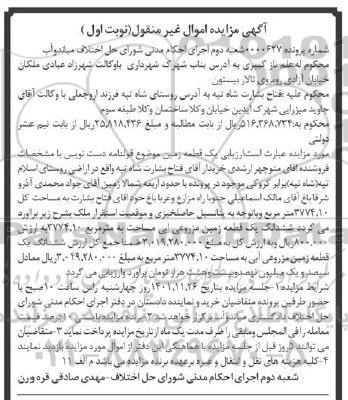 آگهی مزایده اموال غیر منقول(نوبت اول)
شماره پرونده ۰۰۰۰۶۲۷شعبه دوم اجرای احکام مدنی شورای حل اختلاف میاندوآب
محکوم له:علم ناز کبیری به آدرس بناب شهرک شهرداری باوکالت شهرزاد عبادی ملکان
خیابان آزادی روبروی تالار بیستون
محکوم علیه :فتاح بشارت شاه تپه به آدرس روستای شاه تپه فرزند اروجعلی با وکالت آقای
جاوید میرزایی شهرک آیدین خیابان وکلا ساختمان وکلا طبقه سوم
محکوم به:۵۱۶,۳۶۸,۷۳۴ریال از بابت مطالبه و مبلغ ۲۵,۸۱۸,۴۳۶ریال از بابت نیم عشر
دولتی
مورد مزایده عبارت است:ارزیابی یک قطعه زمین موضوع قولنامه دست نویس با مشخصات
فروشنده آقای منوچهر ارشدی خریدار آقای فتاح بشارت شاه تپه واقع در اراضی روستای اسلام
تپه(شاه تپه)برابر کروکی موجود در پرونده با حدود اربعه شمالا زمین آقای جواد محمدی آذر و
شرقا باغ آقای مالک اسماعیلی جنوبا راه مزارع وغربا باغ خود آقای فتاح بشارت به مساحت کل
۳۷۷۴.۱۰متر مربع وباتوجه به پتانسیل حاصلخیزی و موقعیت استقرار ملک بشرح زیر برآورد
می گردد ششدانگ یک قطعه زمین مزروعی آبی به مساحت ۱۰ مترمربع ۳۷۷۴.۱۰به ارزش
۸۰۰.۰۰۰ریال وبه ارزش کل به مبلغ ۳.۰۱۹.۲۸۰.۰۰۰ضمنا جمع کل ارزش ششدانگ یک
قطعه زمین مزروعی آبی به مساحت ۳۷۷۴.۱۰متر مربع به مبلغ ۳.۰۱۹.۲۸۰.۰۰۰ریال معادل
سیصد و یک میلیون نهصدوبیست وهشت هزار تومان برآورد وارزیابی می گردد
شرایط مزایده:۱-جلسه مزایده بتاریخ ۱۴۰۱,۱۱,۲۶روز چهارشنبه راس ساعت ۱۰صبح با
حضور طرفین پرونده متقاضیان خرید و نماینده دادستان در دفتر اجرای احکام مدنی شورای
حل اختلاف
معامله را فی المجلس ومابقی را ظرف مدت یک ماه از تاریخ مزایده پرداخت نماید ۳-متقاضیان
می توانند ۵روز قبل از جلسه مزایده با هماهنگی این دفتر از اموال مورد مزایده بازدید نمایند
۴-کلیه هزینه های نقل و انتقال و غیره برعهده برنده مزایده می باشد م الف ۱۱
شعبه دوم اجرای احکام مدنی شورای حل اختلاف-مهدی صادقی قره وورن